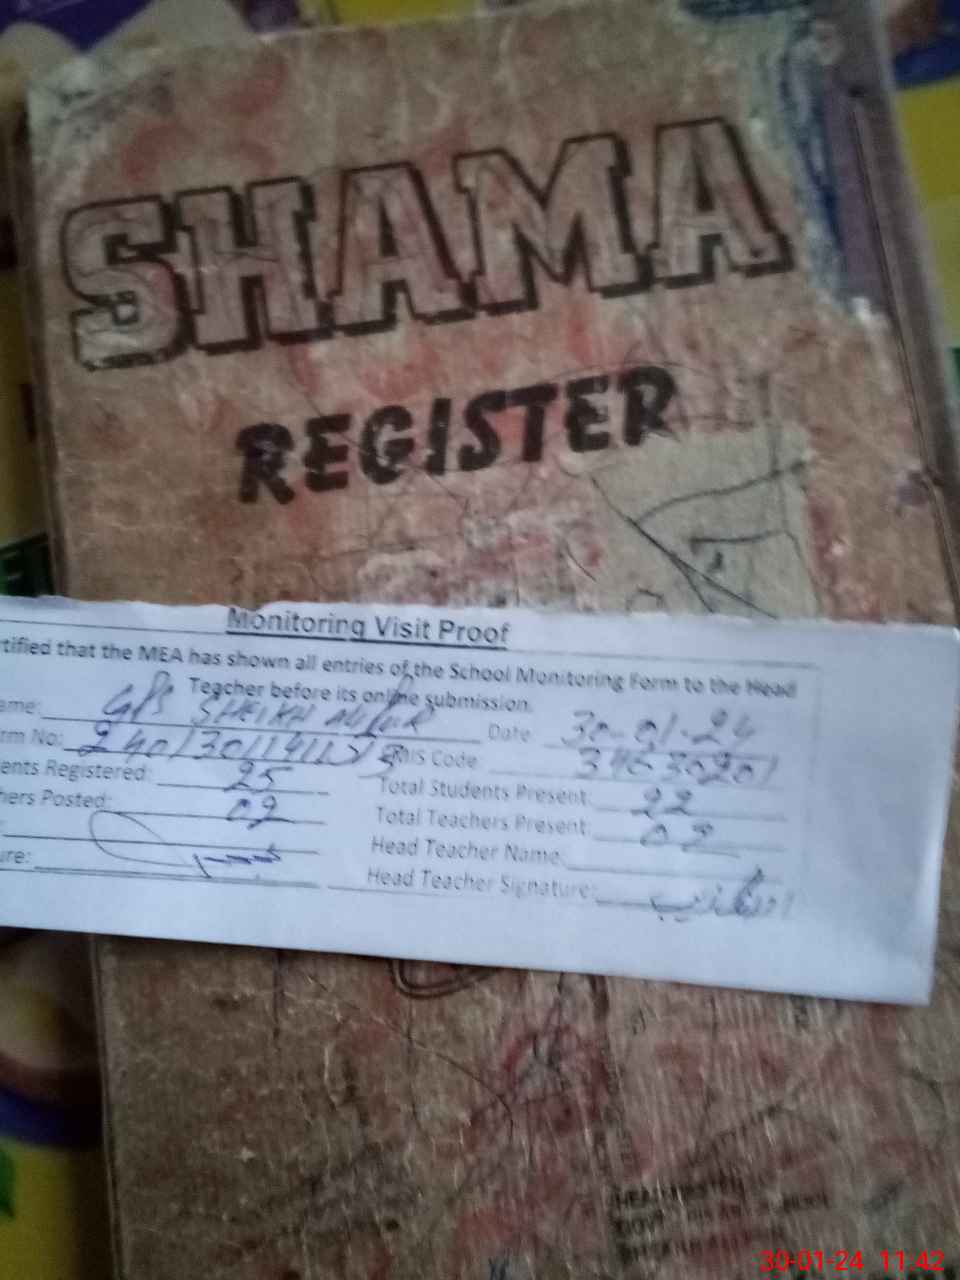 SHAMA
REGISTER
Monitoring Visit Proof
rtified that the MEA has shown all entries of the School Monitoring Form to the Head
Teacher before its online submission.
ame: GPS SHEIKH Date 30-01-24
rm No: Code 34030201
ents Registered: 25 Total Students Present: 22
hers Posted: 02 Total Teachers Present: 02
Head Teacher Name:
ure: Head Teacher Signature:
30-01-24 11:42